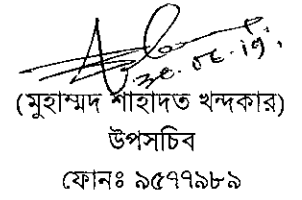 (মুহাম্মদ শাহাদত খন্দকার)
উপসচিব
ফোনঃ ৯৫৭৭৯৮৯